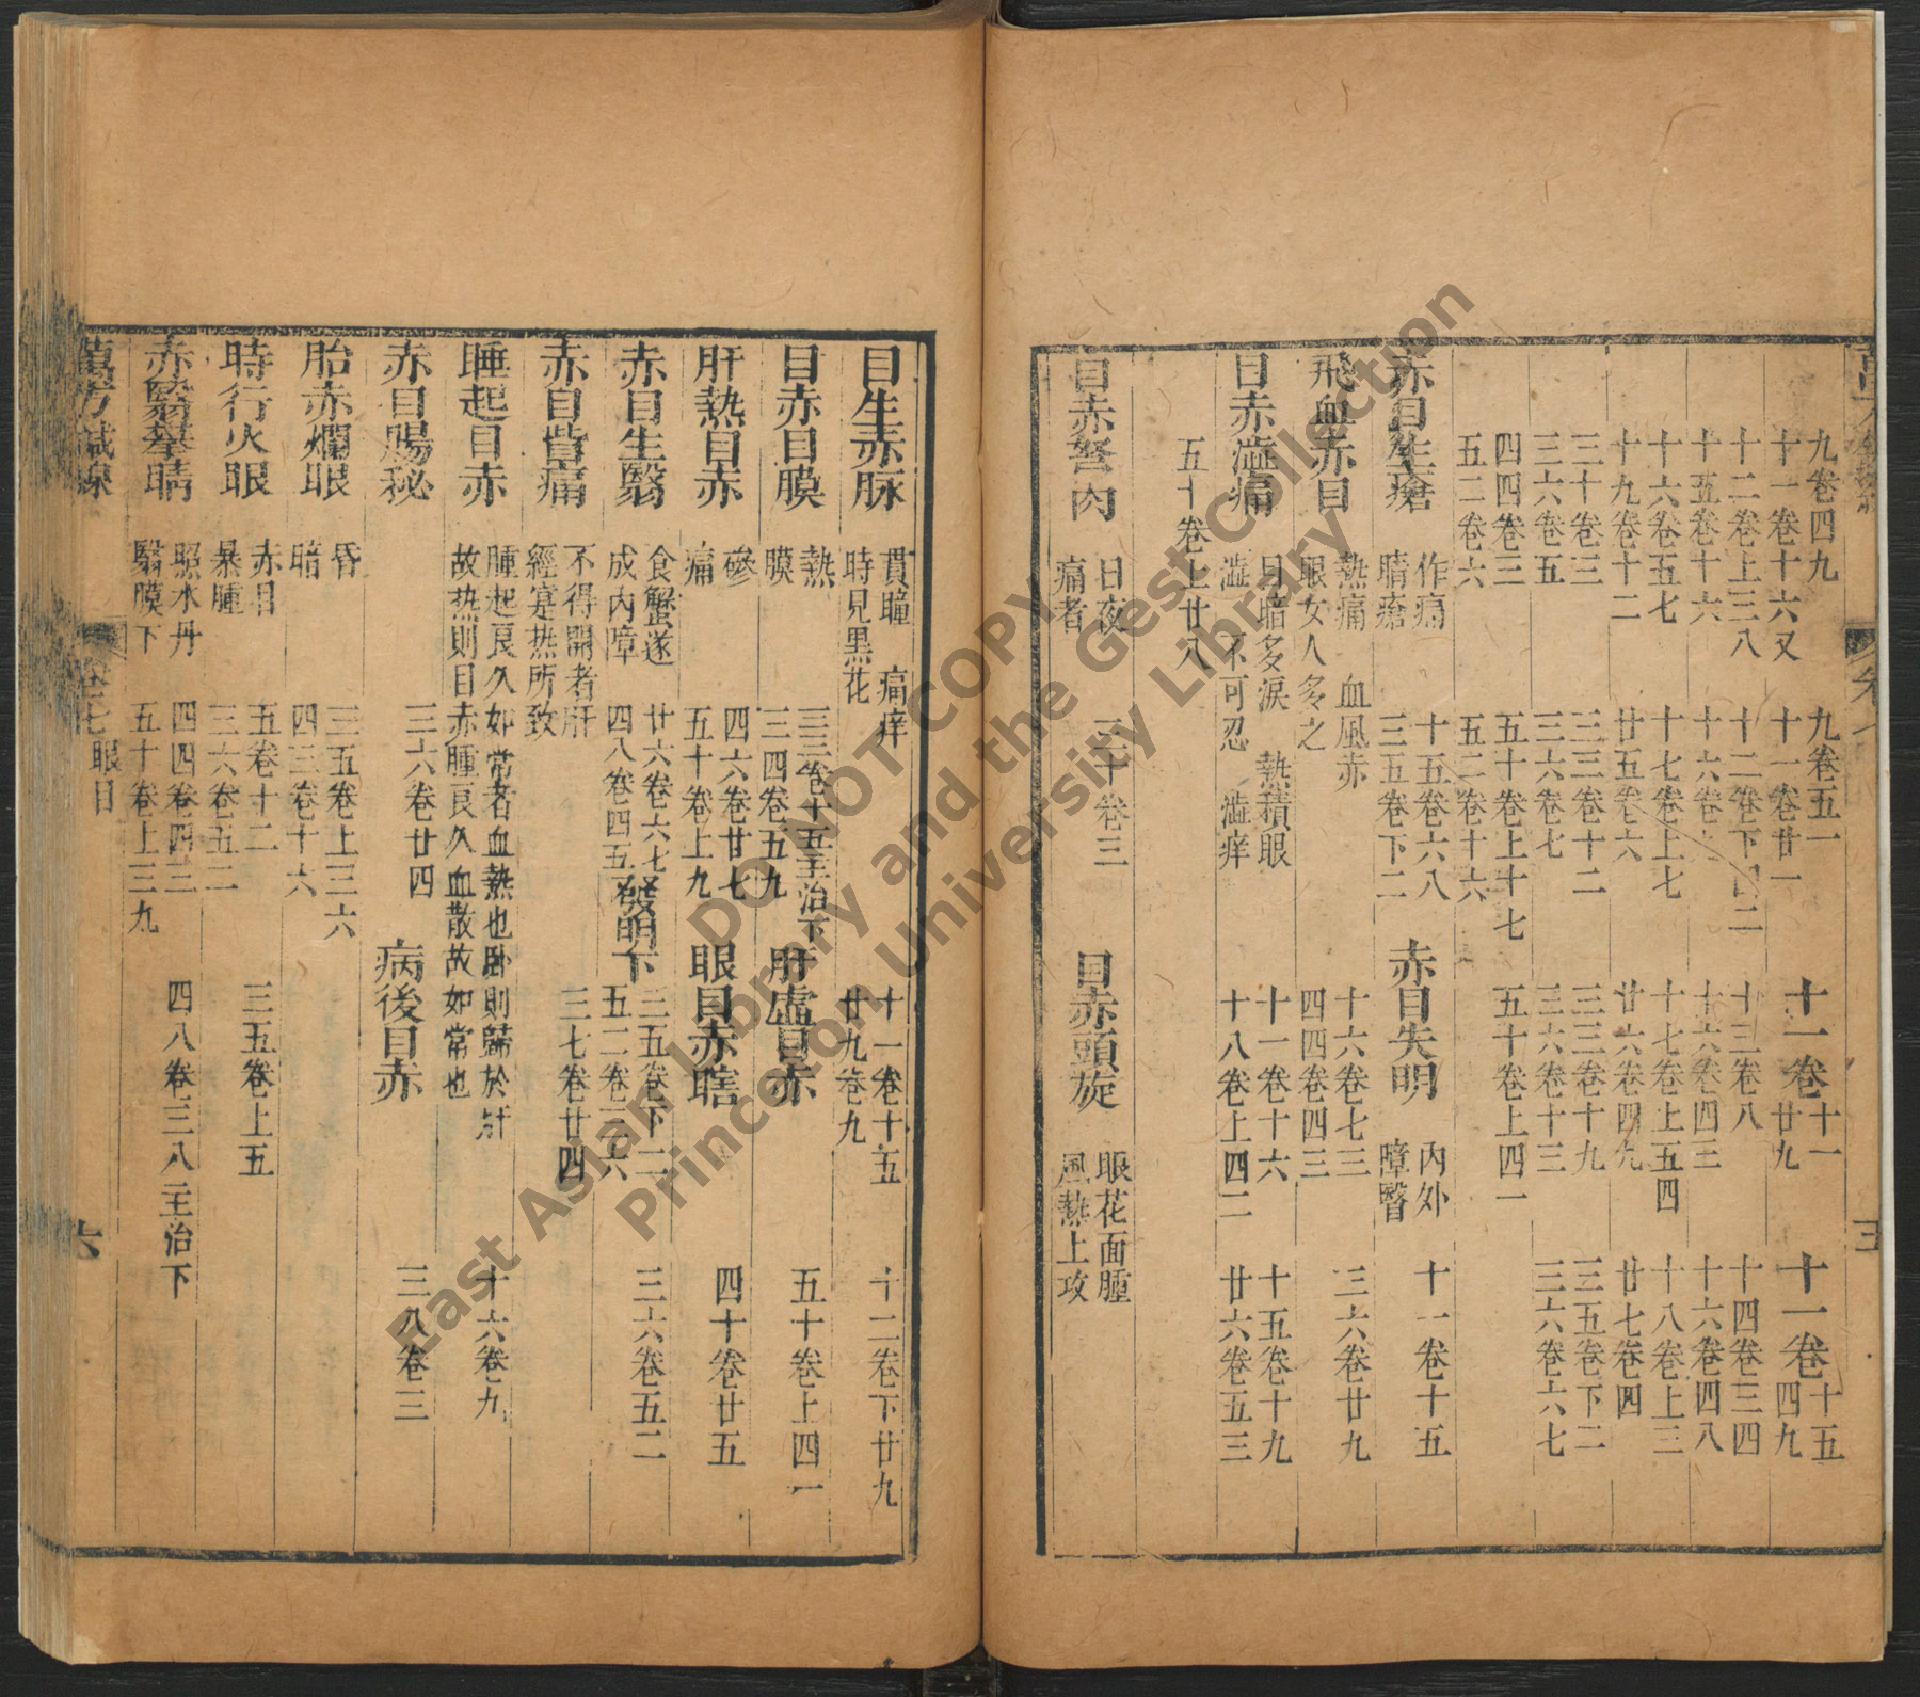 九卷四九 九卷五一 十一卷 十一 廿九 十一卷 十五 四九
十一卷十六又 十一卷廿一
十二卷上三八 十二卷下四二 十三卷八 十四卷三四
十五卷十六 十六卷 十六卷四三 十六卷四八
十六卷五七 十七卷上七 十七卷上五四 十八卷上三
十九卷十二 廿五卷六 廿六卷四九 廿七卷四
三十卷三 三三卷十二 三三卷十九 三五卷下二
三六卷五 三六卷七 三六卷十三 三六卷六七
四四卷三 五十卷上十七 五十卷上四一
五二卷六 五二卷十六
赤目生瘡 作痛 睛瘡 十五卷六八 三五卷下二 赤目失明 內外 障瞖 十一卷十五
飛血赤目 熱痛 血風赤 眼女人多之 十六卷七三 四四卷四三 三六卷廿九
目赤澁痛 目暗多淚 熱積眼 澁 不可忍 澁痒 十一卷十六 十八卷上四二 十五卷十九 廿六卷五三
五十卷上廿八
目赤努肉 日夜 痛者 三十卷三 目赤頭旋 眼花面腫 風熱上攻
目生赤脉 貫瞳 痛痒 時見黑花 十一卷十五 廿九卷九 十二卷下廿九
目赤目膜 熱 膜 三三卷十五主治下 三四卷五九 肝虛目赤 五十卷上四一
肝熱目赤 磣 痛 四六卷廿七 五十卷上九 眼目赤瞎 四十卷廿五
赤目生翳 食蟹遂 成內障 廿六卷六七 四八卷四五發明下 三五卷下二 五二卷三六 三六卷五二
赤目眥痛 不得開者肝 經寔热所致 三七卷廿四
睡起目赤 腫起良久如常者血熱也卧則歸於肝 故热則目赤腫良久血散故如常也 十六卷九
赤目腸秘 三六卷廿四 病後目赤 三八卷三
胎赤爛眼 昏 暗 三五卷上三六 四三卷十六
時行火眼 赤目 暴腫 五卷十二 三六卷五二 三五卷上五
赤翳攀睛 照水丹 翳膜下 四四卷四三 五十卷上三九 四八卷三八主治下
萬方鍼線 卷之七 眼目 六